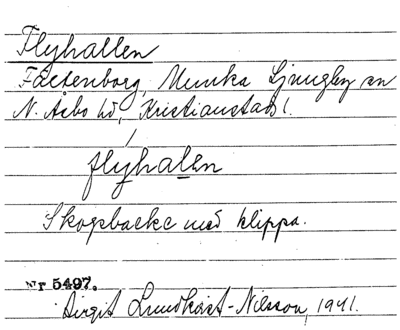 Flyhallen
Færenborg, Munka Ljungby sn
N. Åsbo hd, Kristianstads l.
flyhalen
Skogsbacke med klippa.
Nr 5497.
Birgit Lundkvist-Nilsson, 1941.